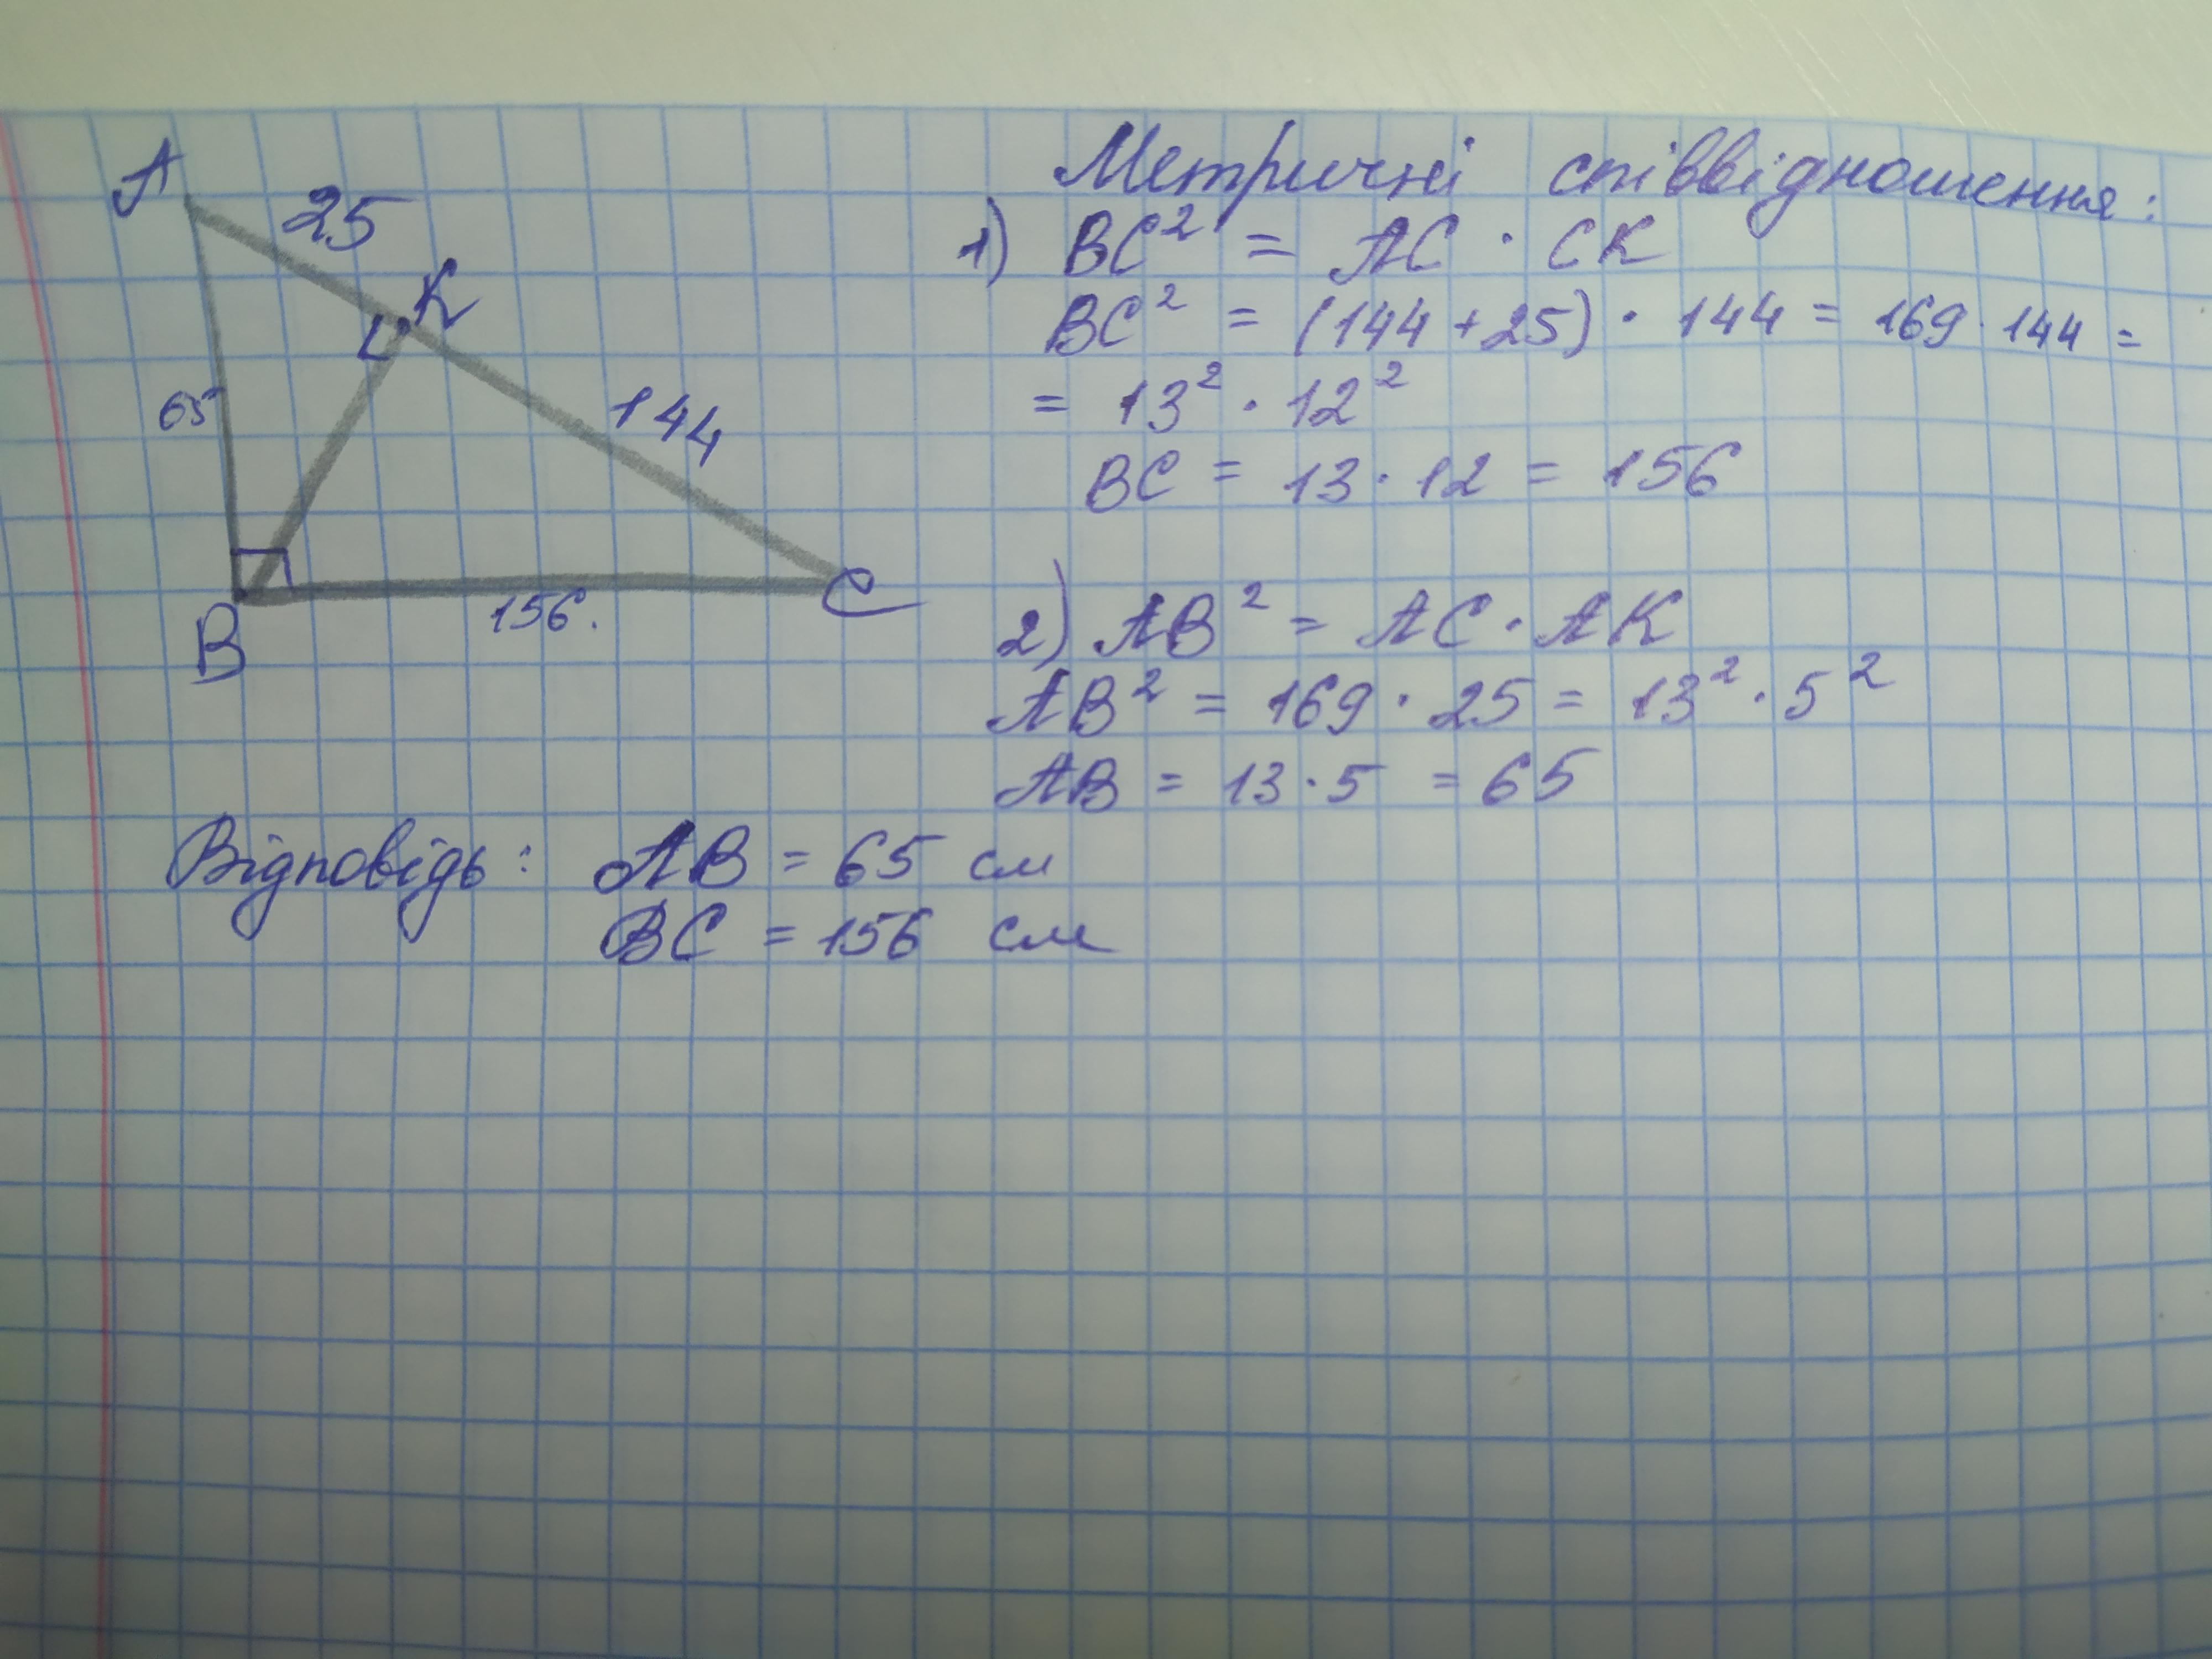 A
25
K
65
144
B
156.
C
Метричні співвідношення:
1) BC² = AC · CK
BC² = (144 + 25) · 144 = 169 · 144 =
= 13² · 12²
BC = 13 · 12 = 156
2) AB² = AC · AK
AB² = 169 · 25 = 13² · 5²
AB = 13 · 5 = 65
Відповідь: AB = 65 см
BC = 156 см